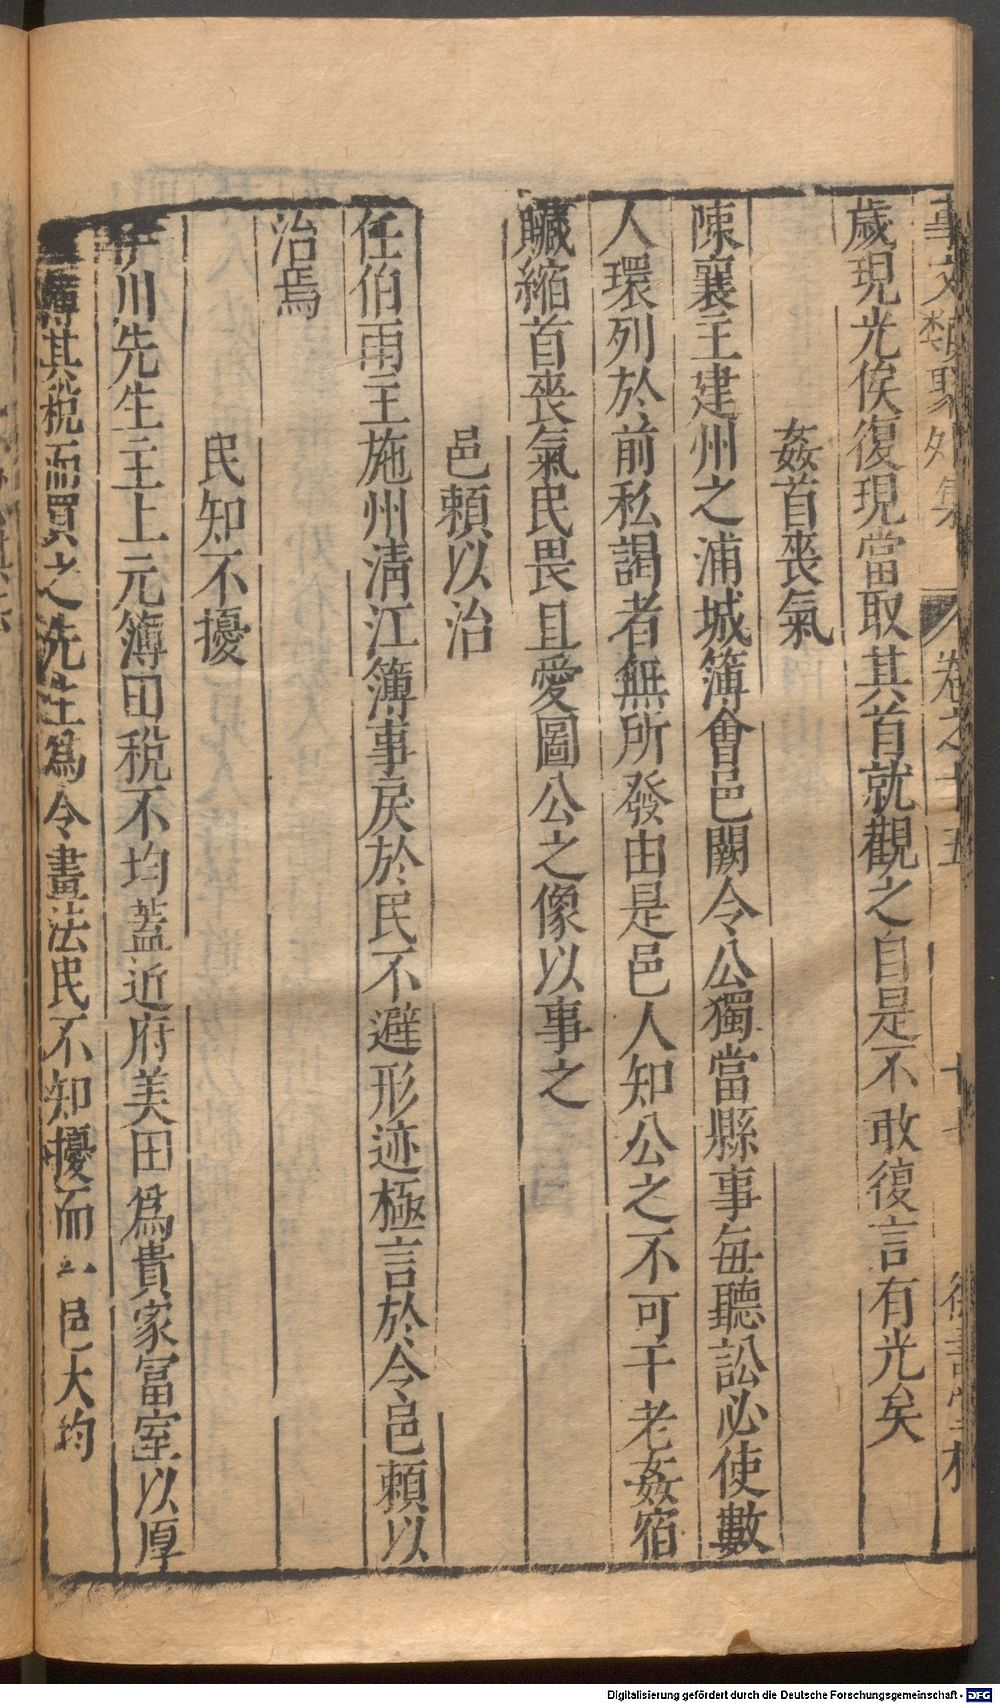 事文類聚外集 卷之十五 十七
歲現光俟復現當取其首就觀之自是不敢復言有光矣
姦首喪氣
陳襄主建州之浦城簿會邑闕令公獨當縣事每聽訟必使數
人環列於前私謁者無所發由是邑人知公之不可干老姦宿
贓縮首喪氣民畏且愛圖公之像以事之
邑賴以治
任伯雨主施州清江簿事戾於民不避形迹極言於令邑賴以
治焉
民知不擾
伊川先生主上元簿田稅不均蓋近府美田爲貴家富室以厚
薄其稅而買之先生爲令畫法民不知擾而一邑大均
Digitalisierung gefördert durch die Deutsche Forschungsgemeinschaft - DFG